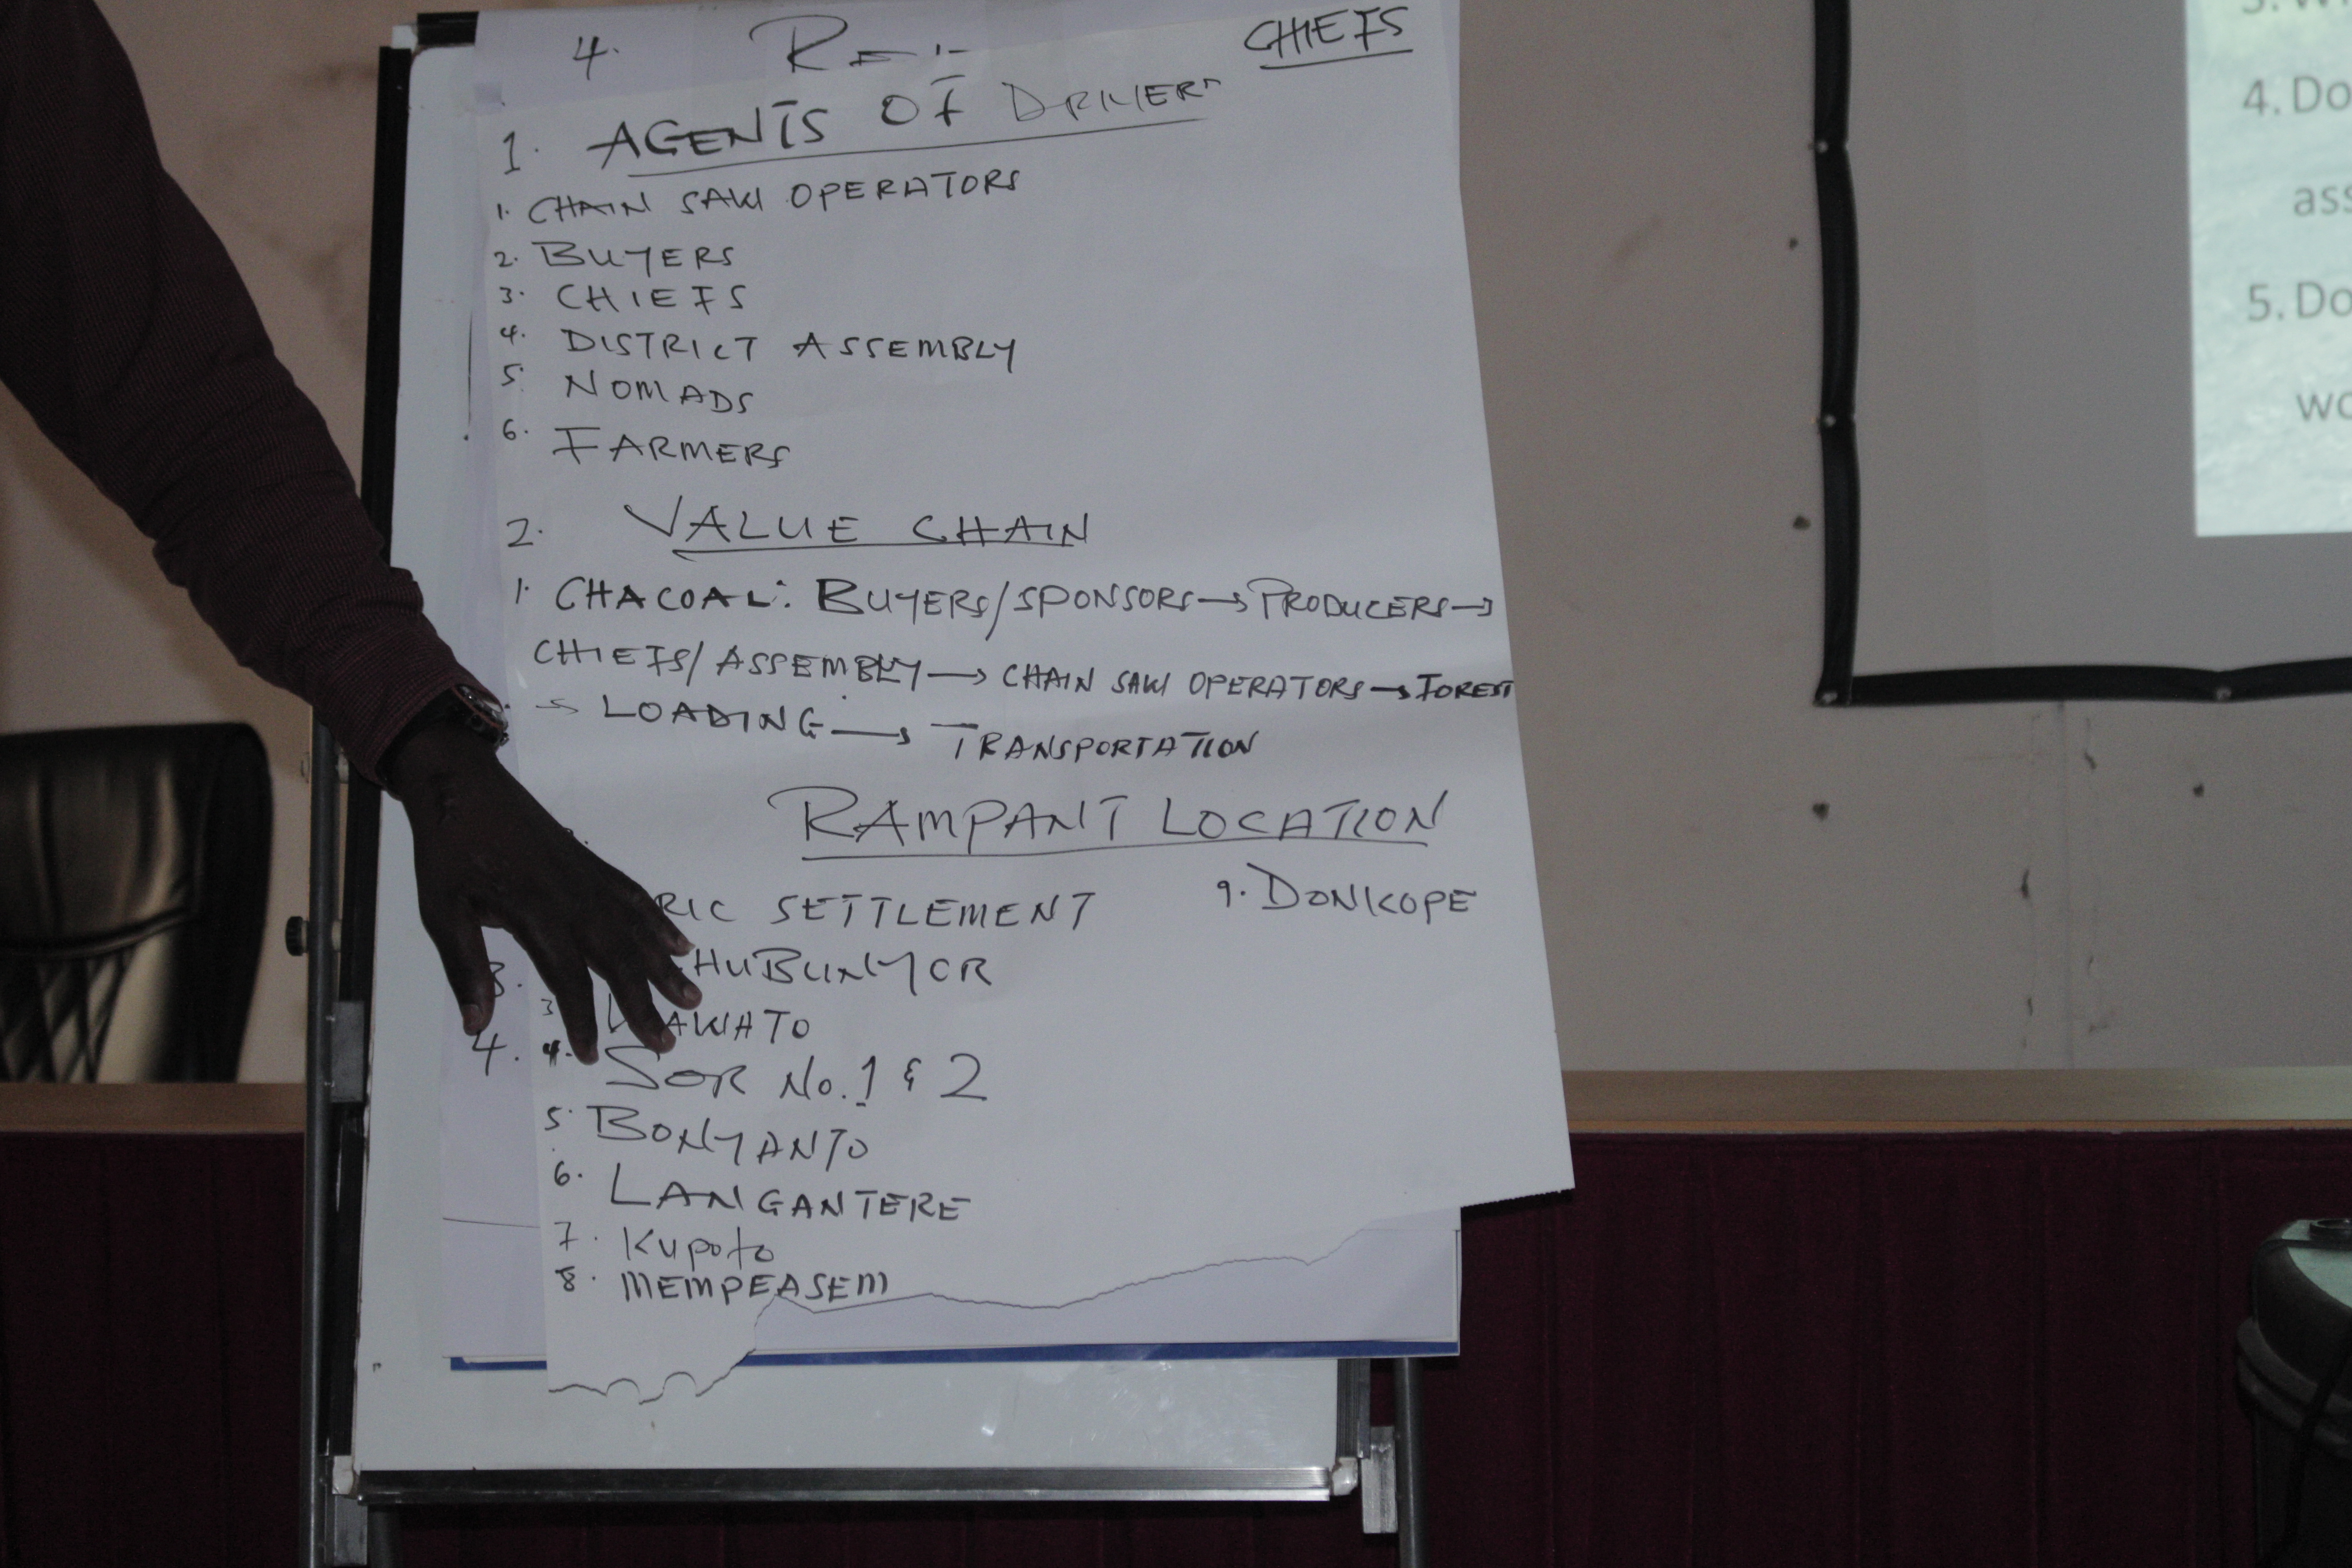 4.
CHIEFS
1. AGENTS OF DRIVERS
1. CHAIN SAW OPERATORS
2. BUYERS
3. CHIEFS
4. DISTRICT ASSEMBLY
5. NOMADS
6. FARMERS
2. VALUE CHAIN
1. CHACOAL: BUYERS/SPONSORS → PRODUCERS →
CHIEFS/ASSEMBLY → CHAIN SAW OPERATORS → FOREST
→ LOADING → TRANSPORTATION
RAMPANT LOCATION
RIC SETTLEMENT
9. DONKOPE
HUBUNYOR
3. AWATO
4. SOR No. 1 & 2
5. BONYANTO
6. LANGANTERE
7. Kupoto
8. MEMPEASEM
3.
4.
4. Do
ass
5. Do
wo